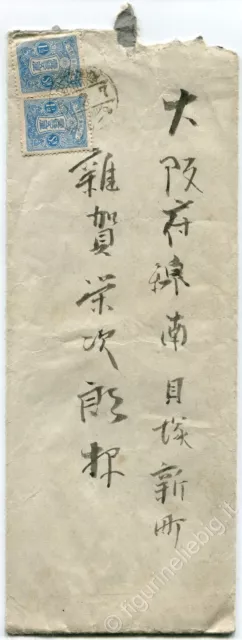 大阪府泉南貝塚新町
雜賀栄次郎様
© figurineliebig.it